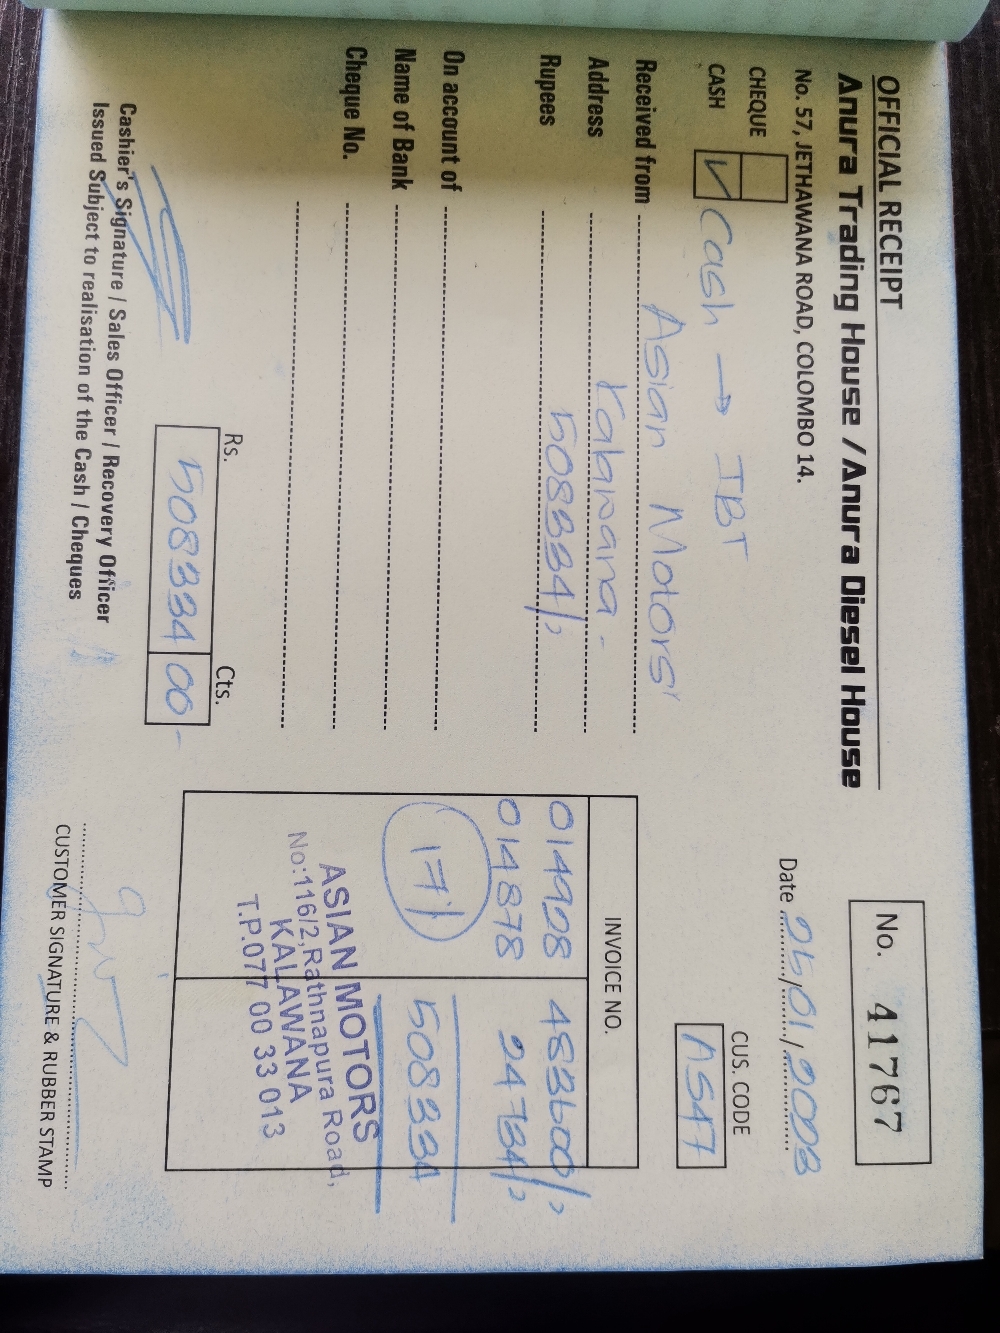 OFFICIAL RECEIPT
Anura Trading House / Anura Diesel House
No. 57, JETHAWANA ROAD, COLOMBO 14.
No. 41767
Date 25/01/2023
CHEQUE
CASH ✓ Cash → IBT
CUS. CODE
AS47
Received from Asian Motors
Address Kalawana -
Rupees 508334/,
On account of
Name of Bank
Cheque No.
INVOICE NO.
014928 483600/,
014878 24734/,
171 508334
ASIAN MOTORS
No:116/2,Rathnapura Road,
KALAWANA
T.P.077 00 33 013
Rs. Cts.
508334 00-
Cashier's Signature / Sales Officer / Recovery Officer
Issued Subject to realisation of the Cash / Cheques
CUSTOMER SIGNATURE & RUBBER STAMP